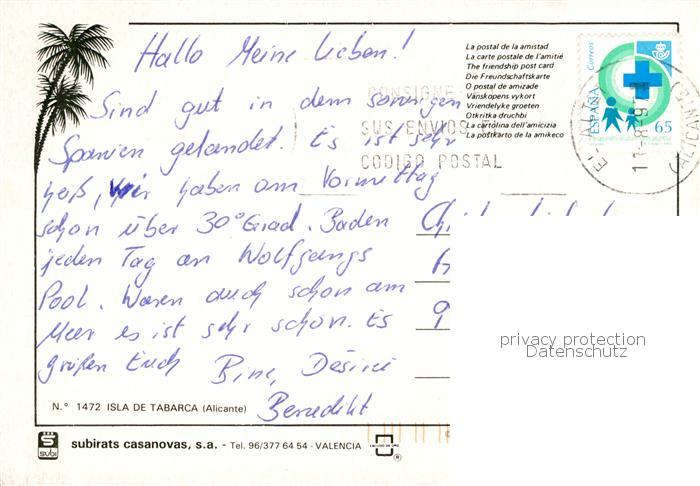 Hallo Meine Lieben!
Sind gut in dem sonnigen
Spanien gelandet. Es ist sehr
heiß, Wir haben am Vormittag
schon über 30° Grad. Baden
jeden Tag an Wolfgangs
Pool. Waren auch schon am
Meer es ist sehr schön. Es
grüßen Euch Bine, Desirée
Benedikt
La postal de la amistad
La carte postale de l'amitié
The friendship post card
Die Freundschaftskarte
O postal de amizade
Vänskapens vykort
Vriendelyke groeten
Otkritka druchbi
La cartolina dell'amicizia
La postkarto de la amikeco
CONSIGNE
SUS ENVIOS EL
CODIGO POSTAL
Correos
ESPAÑA
65
privacy protection
Datenschutz
N.° 1472 ISLA DE TABARCA (Alicante)
SUBI
subirats casanovas, s.a. - Tel. 96/377 64 54 - VALENCIA